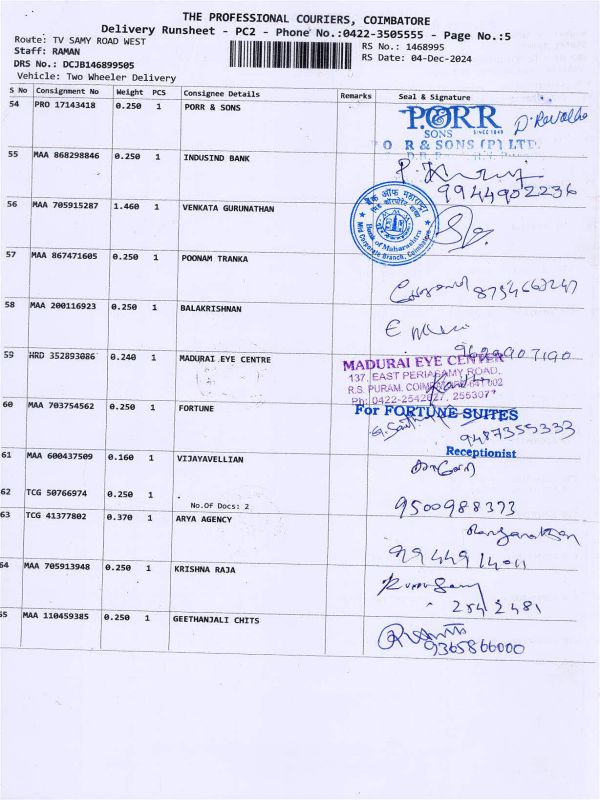 THE PROFESSIONAL COURIERS, COIMBATORE
Delivery Runsheet - PC2 - Phone No.:0422-3505555 - Page No.:5
Route: TV SAMY ROAD WEST
RS No.: 1468995
Staff: RAMAN
RS Date: 04-Dec-2024
DRS No.: DCJB146899505
Vehicle: Two Wheeler Delivery
S No Consignment No Weight PCS Consignee Details Remarks Seal & Signature
54 PRO 17143418 0.250 1 PORR & SONS
PORR
SONS SINCE 1949
O R & SONS (P) LTD.
55 MAA 868298846 0.250 1 INDUSIND BANK
9944902236
56 MAA 705915287 1.460 1 VENKATA GURUNATHAN
बैंक ऑफ महाराष्ट्र
Bank of Maharashtra
Mid Corporate Branch, Coimbatore
57 MAA 867471605 0.250 1 POONAM TRANKA
8754663247
58 MAA 200116923 0.250 1 BALAKRISHNAN
59 HRD 352893086 0.240 1 MADURAI EYE CENTRE
9629907190
MADURAI EYE CENTER
137, EAST PERIASAMY ROAD,
R.S. PURAM, COIMBATORE-641 002
Ph: 0422-2542827, 2553077
60 MAA 703754562 0.250 1 FORTUNE
For FORTUNE SUITES
9487355333
Receptionist
61 MAA 600437509 0.160 1 VIJAYAVELLIAN
62 TCG 50766974 0.250 1
No.Of Docs: 2
9500988373
63 TCG 41377802 0.370 1 ARYA AGENCY
64 MAA 705913948 0.250 1 KRISHNA RAJA
2542481
65 MAA 110459385 0.250 1 GEETHANJALI CHITS
9365866000